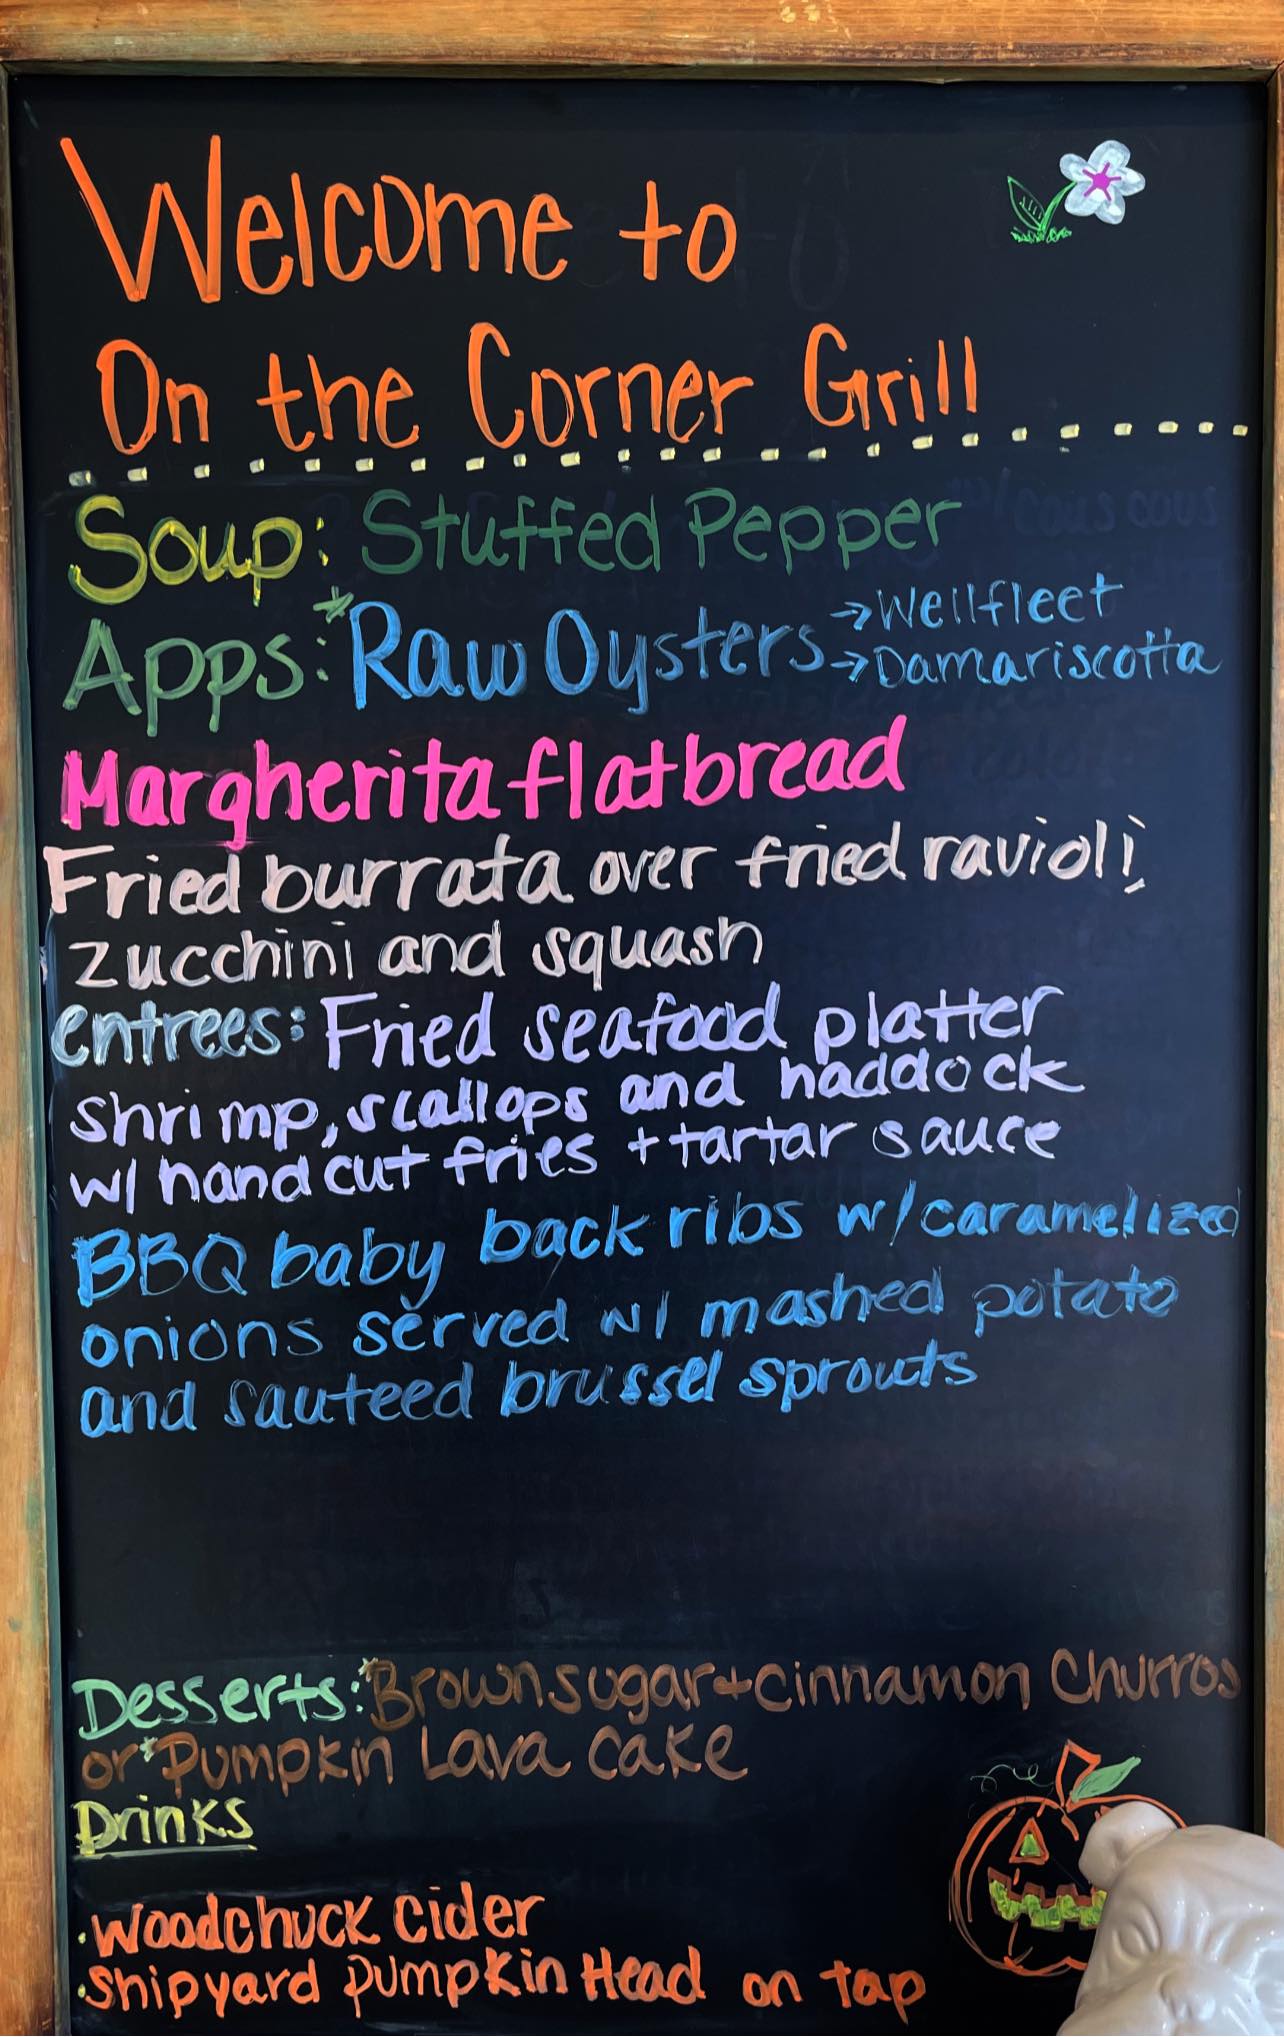 Welcome to
On the Corner Grill
Soup: Stuffed Pepper
Apps: *Raw Oysters → Wellfleet
→ Damariscotta
Margherita flatbread
Fried burrata over fried ravioli,
zucchini and squash
entrees: Fried seafood platter
shrimp, scallops and haddock
w/ hand cut fries + tartar sauce
BBQ baby back ribs w/ caramelized
onions served w/ mashed potato
and sauteed brussel sprouts
Desserts: *Brown sugar + cinnamon Churros
or *Pumpkin Lava cake
Drinks
· Woodchuck Cider
· Shipyard pumpkin Head on tap